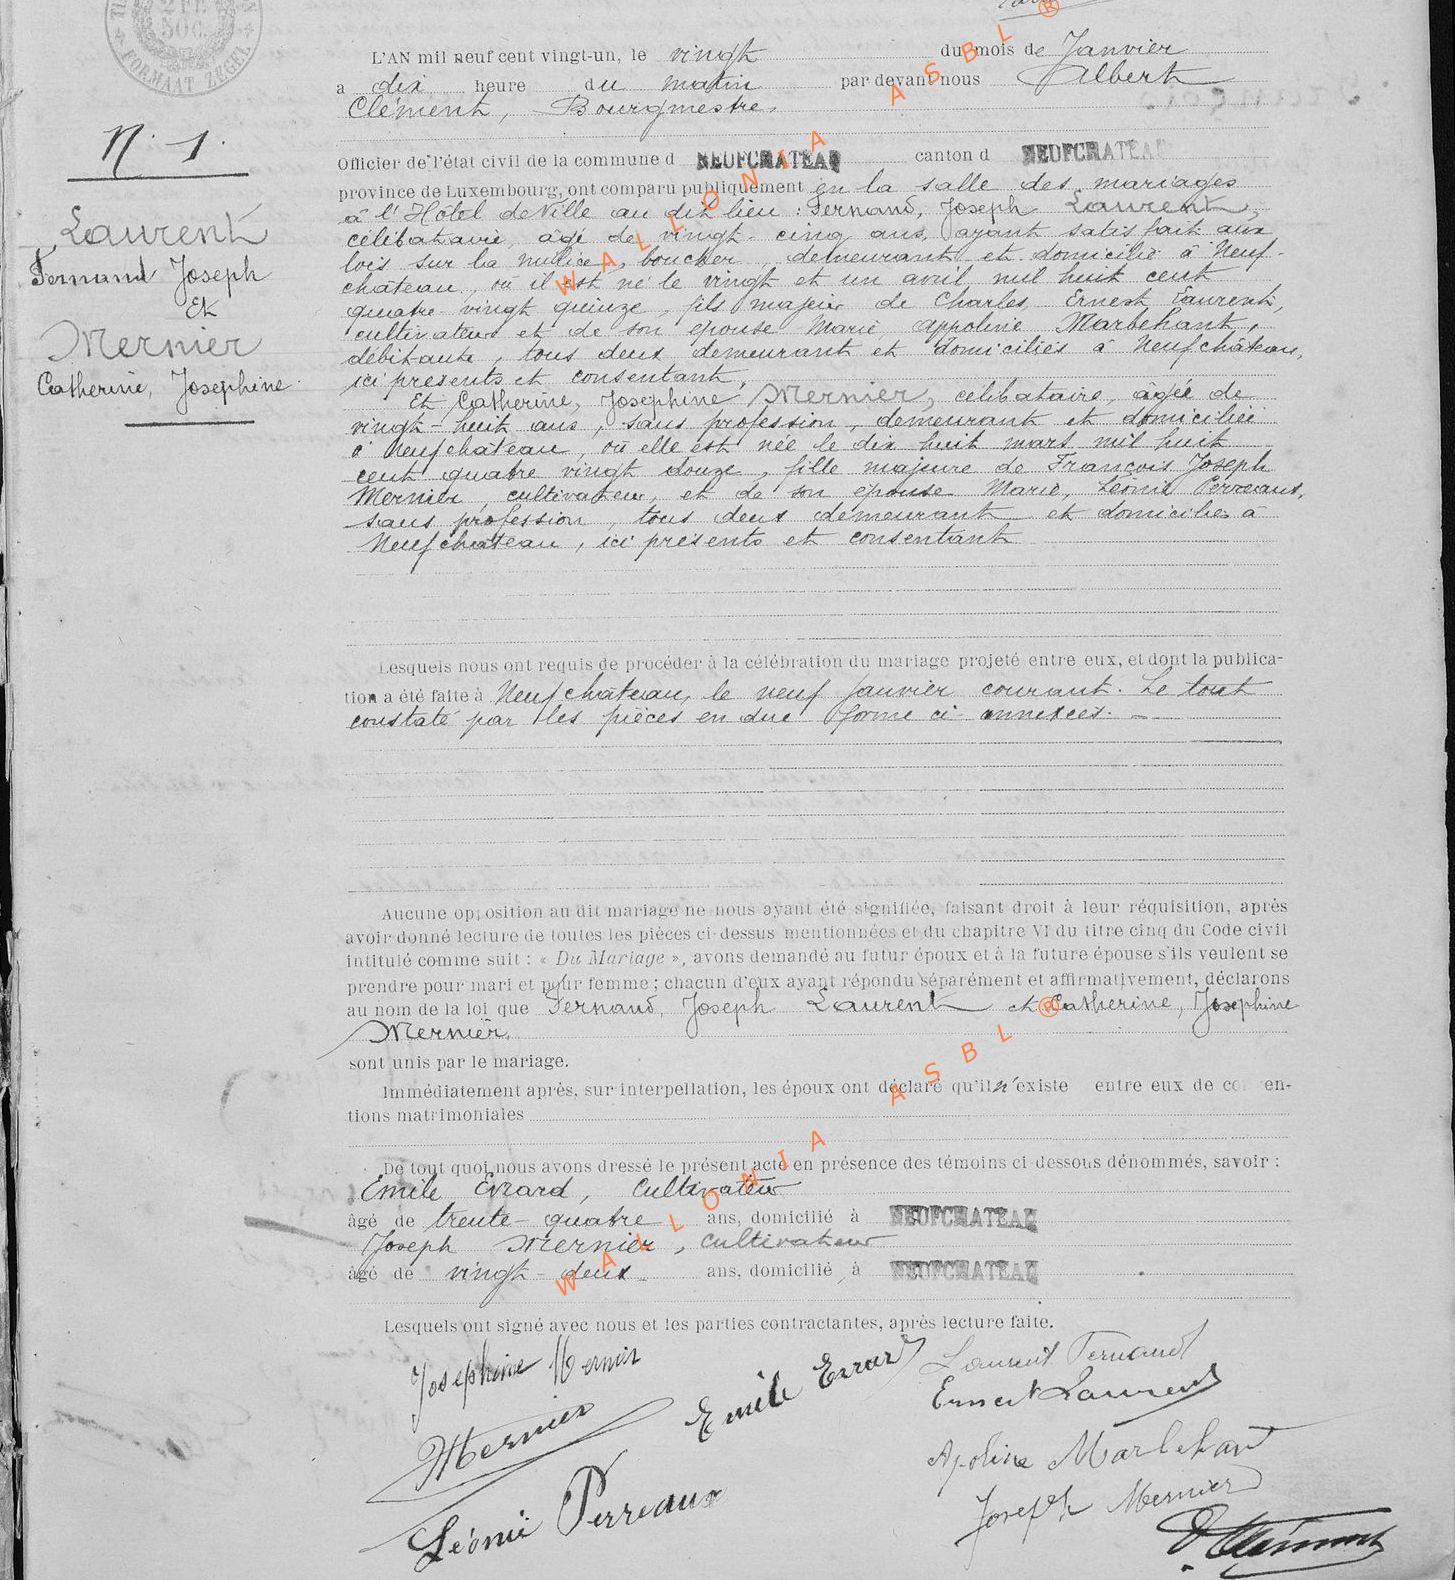 FORMAAT ZEGEL
L'AN mil neuf cent vingt-un, le vingt du mois de Janvier
a dix heure du matin par devant nous Albert
Clément, Bourgmestre.
N. 1.
Officier de l'état civil de la commune d NEUFCHATEAU canton d NEUFCHATEAU
province de Luxembourg, ont comparu publiquement en la salle des mariages
à l'Hôtel de Ville au dit lieu : Fernand, Joseph Laurent,
célibataire, âgé de vingt-cinq ans, ayant satisfait aux
lois sur la milice, boucher, demeurant et domicilié à Neuf-
château, où il est né le vingt et un avril mil huit cent
quatre-vingt quinze, fils majeur de Charles, Ernest Laurent,
cultivateur et de son épouse Marie, Appoline Marbehant,
débitante, tous deux demeurant et domiciliés à Neufchâteau,
ici présents et consentant,
Laurent
Fernand Joseph
Et
Mernier
Catherine, Josephine.
Et Catherine, Josephine Mernier, célibataire, âgée de
vingt-huit ans, sans profession, demeurant et domiciliée
à Neufchâteau, où elle est née le dix huit mars mil huit
cent quatre vingt douze, fille majeure de François Joseph
Mernier, cultivateur, et de son épouse Marie, Léonie Perreaux,
sans profession, tous deux demeurant et domiciliés à
Neufchateau, ici présents et consentant
Lesquels nous ont requis de procéder à la célébration du mariage projeté entre eux, et dont la publica-
tion a été faite à Neufchâteau, le neuf Janvier courant. Le tout
constaté par les pièces en due forme ci-annexées.
Aucune opposition au dit mariage ne nous ayant été signifiée, faisant droit à leur réquisition, après
avoir donné lecture de toutes les pièces ci-dessus mentionnées et du chapitre VI du titre cinq du Code civil
intitulé comme suit : « Du Mariage », avons demandé au futur époux et à la future épouse s'ils veulent se
prendre pour mari et pour femme ; chacun d'eux ayant répondu séparément et affirmativement, déclarons
au nom de la loi que Fernand, Joseph Laurent et Catherine, Josephine
Mernier.
sont unis par le mariage.
Immédiatement après, sur interpellation, les époux ont déclaré qu'il n'existe entre eux de conven-
tions matrimoniales
De tout quoi nous avons dressé le présent acte en présence des témoins ci-dessous dénommés, savoir :
Emile Evrard, cultivateur
âgé de trente-quatre ans, domicilié à NEUFCHATEAU
Joseph Mernier, cultivateur
âgé de vingt-deux ans, domicilié à NEUFCHATEAU
Lesquels ont signé avec nous et les parties contractantes, après lecture faite.
Josephine Mernier
Laurent Fernand
Emile Evrard
Ernest Laurent
Mernier
Apoline Marbehant
Léonie Perreaux
Joseph Mernier
Clément
WALLONIA ASBL ®
WALLONIA ASBL ®